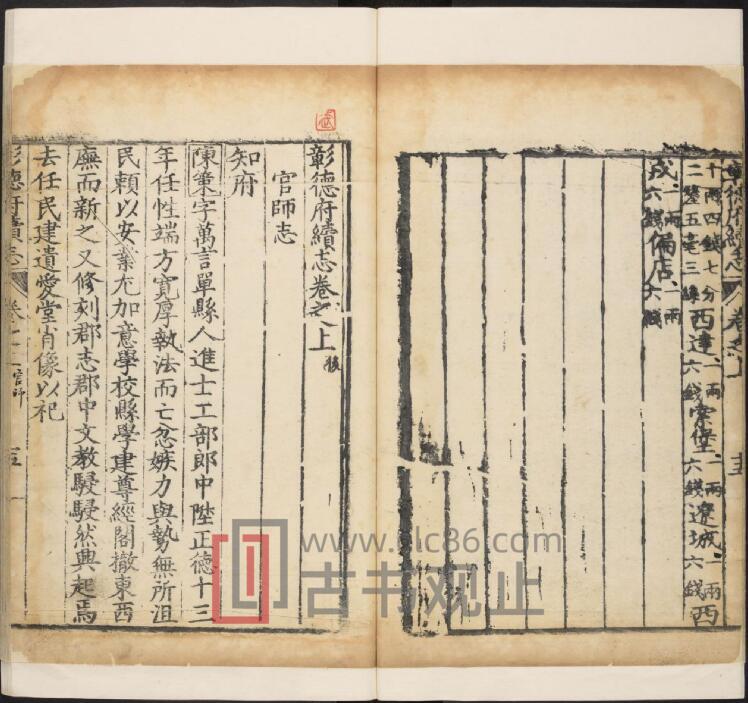 十兩四錢七分
二釐五毫三絲西達一兩六錢寨堡一兩六錢遼城一兩六錢西
戍一兩六錢偏店一兩六錢
彰德府續志卷之上後
官師志
知府
陳策字萬言單縣人進士工部郎中陞正德十三
年任性端方寬厚執法而亡忿嫉力與勢無所沮
民賴以安業尤加意學校縣學建尊經閣撤東西
廡而新之又修刻郡志郡中文教駸駸然興起焉
去任民建遺愛堂肖像以祀
彰德府續志 官師
www. lc86.com
古书观止